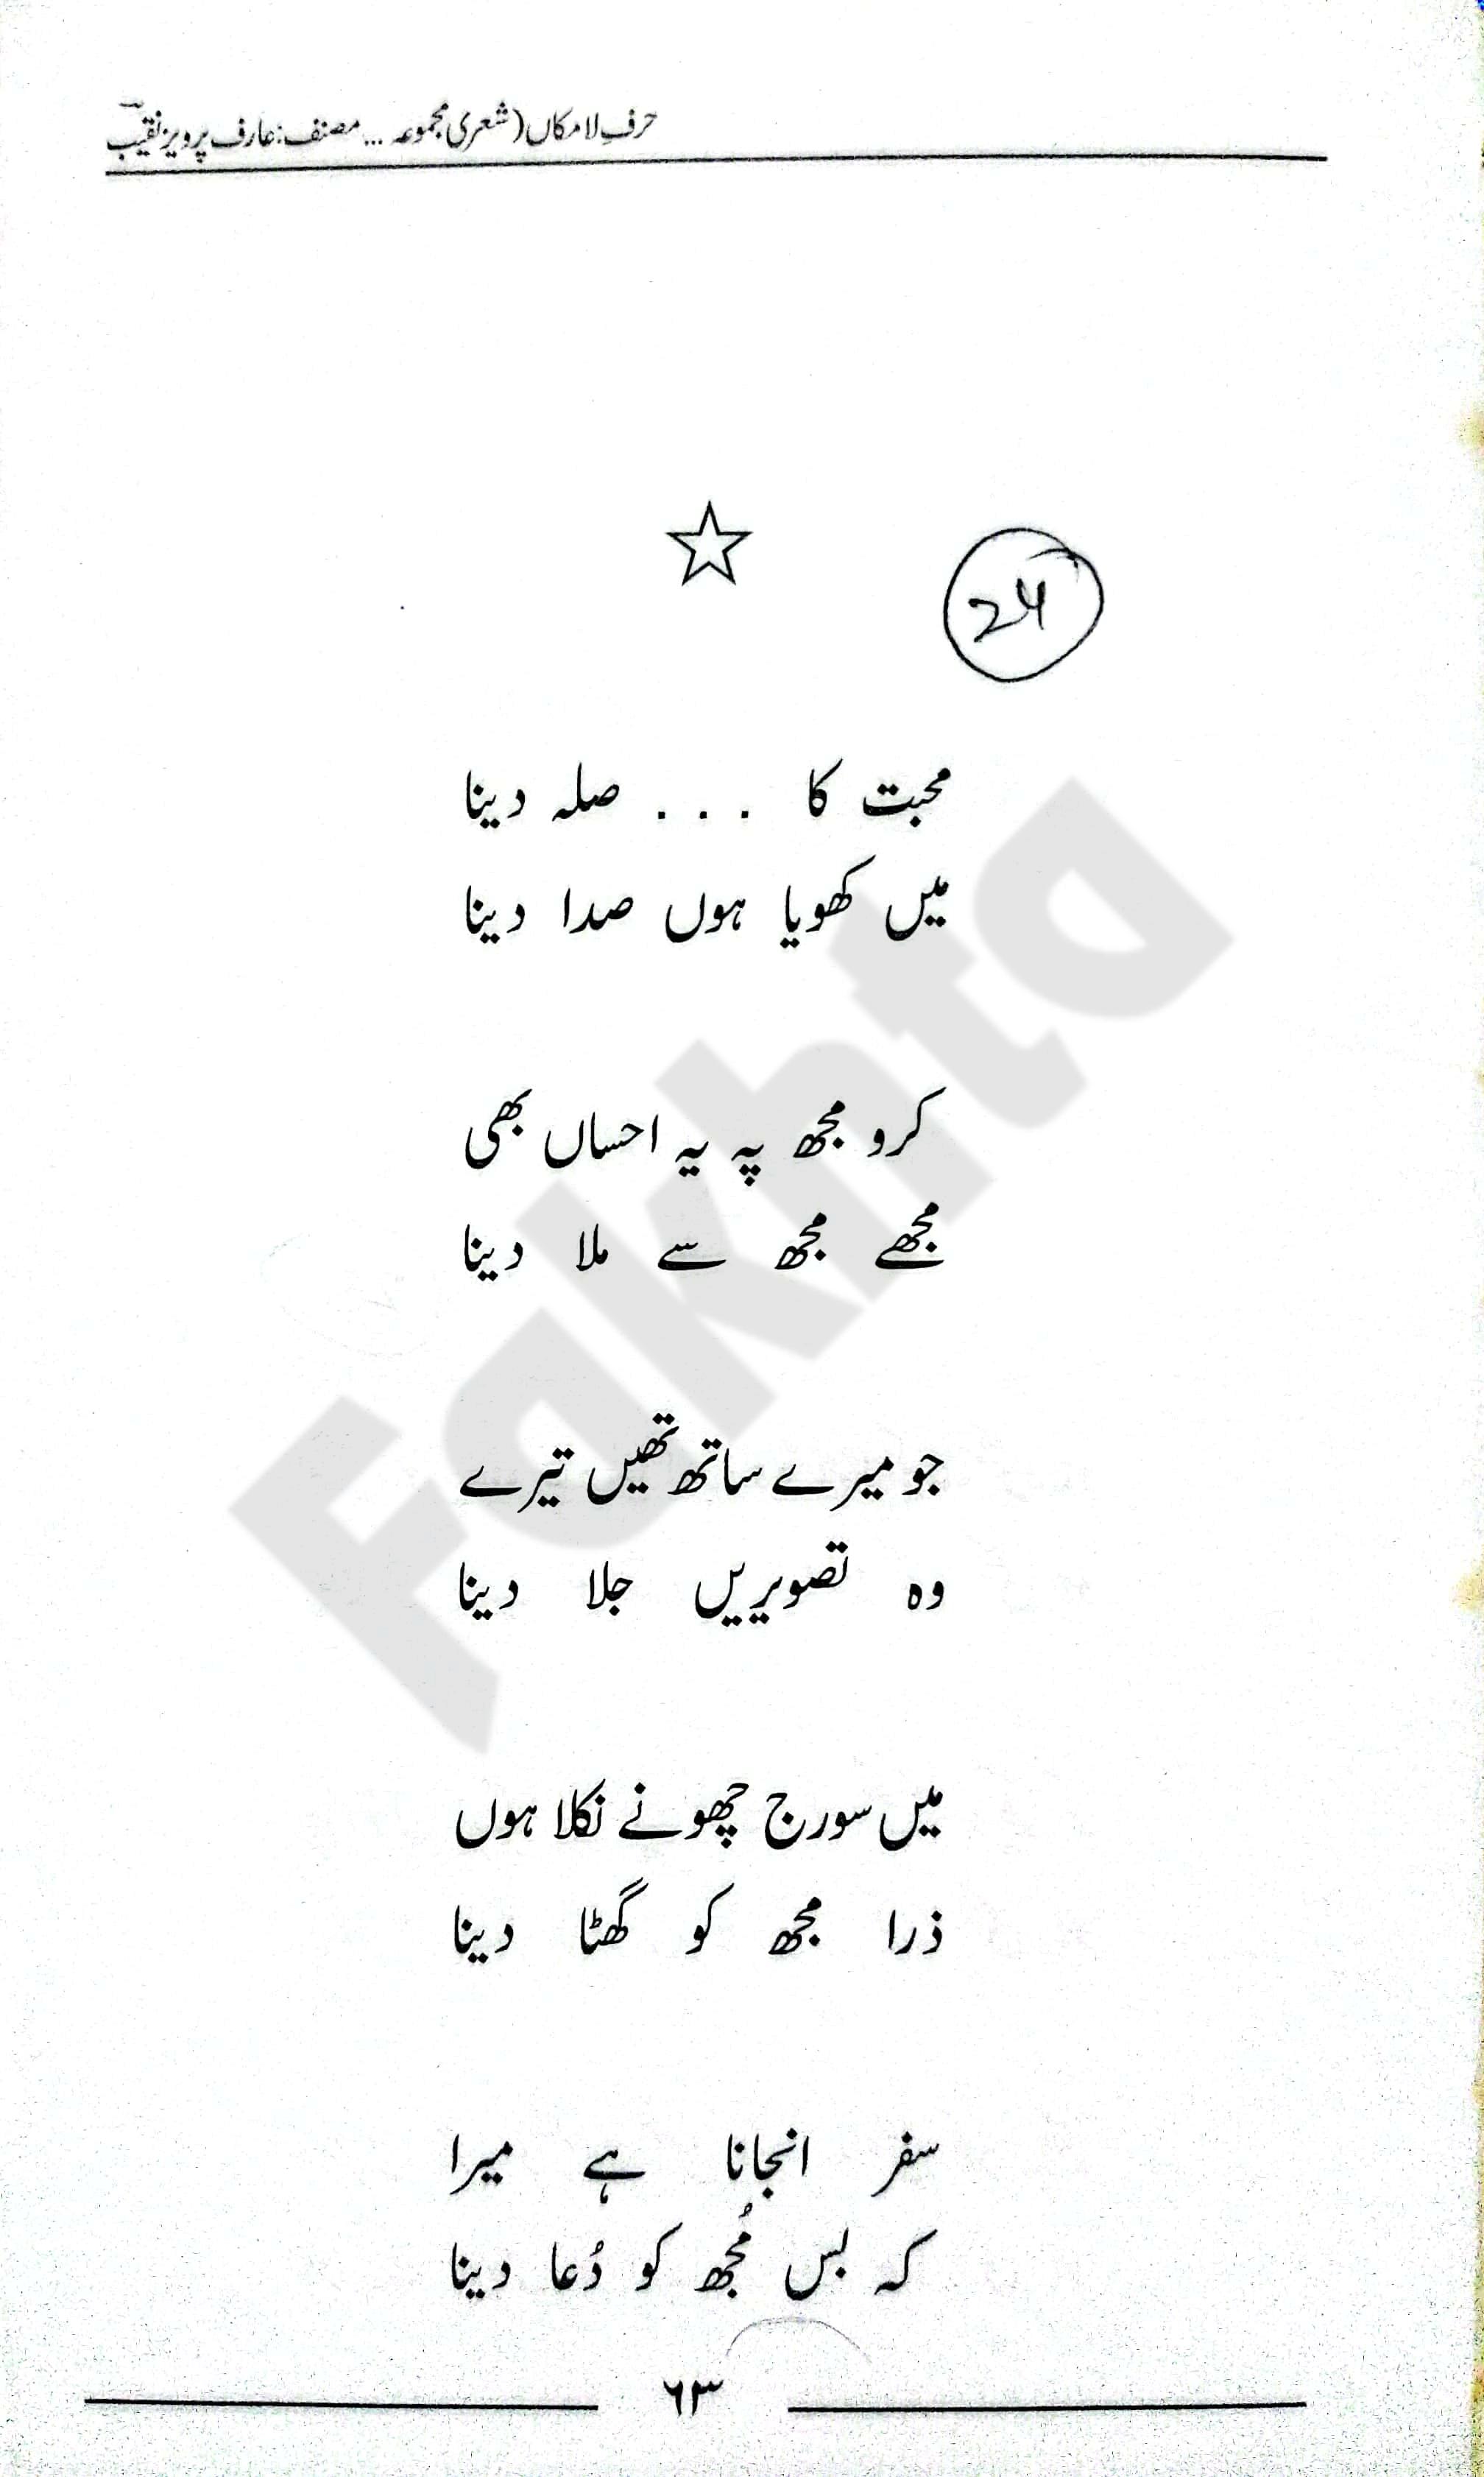 حرفِ لامکاں (شعری مجموعہ ... مصنف: عارف پرویز نقیب
24
محبت کا . . . صلہ دینا
میں کھویا ہوں صدا دینا
کرو مجھ پہ یہ احساں بھی
مجھے مجھ سے ملا دینا
جو میرے ساتھ تھیں تیرے
وہ تصویریں جلا دینا
میں سورج چھونے نکلا ہوں
ذرا مجھ کو گھٹا دینا
سفر انجانا ہے میرا
کہ بس مُجھ کو دُعا دینا
۶۳
Fakhta